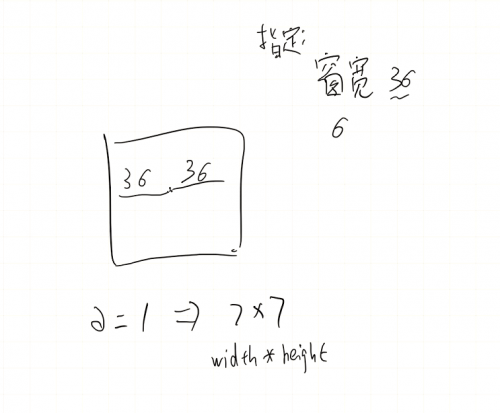 指定:
窗宽 36
6
36 36
a=1 => 7*7
width * height